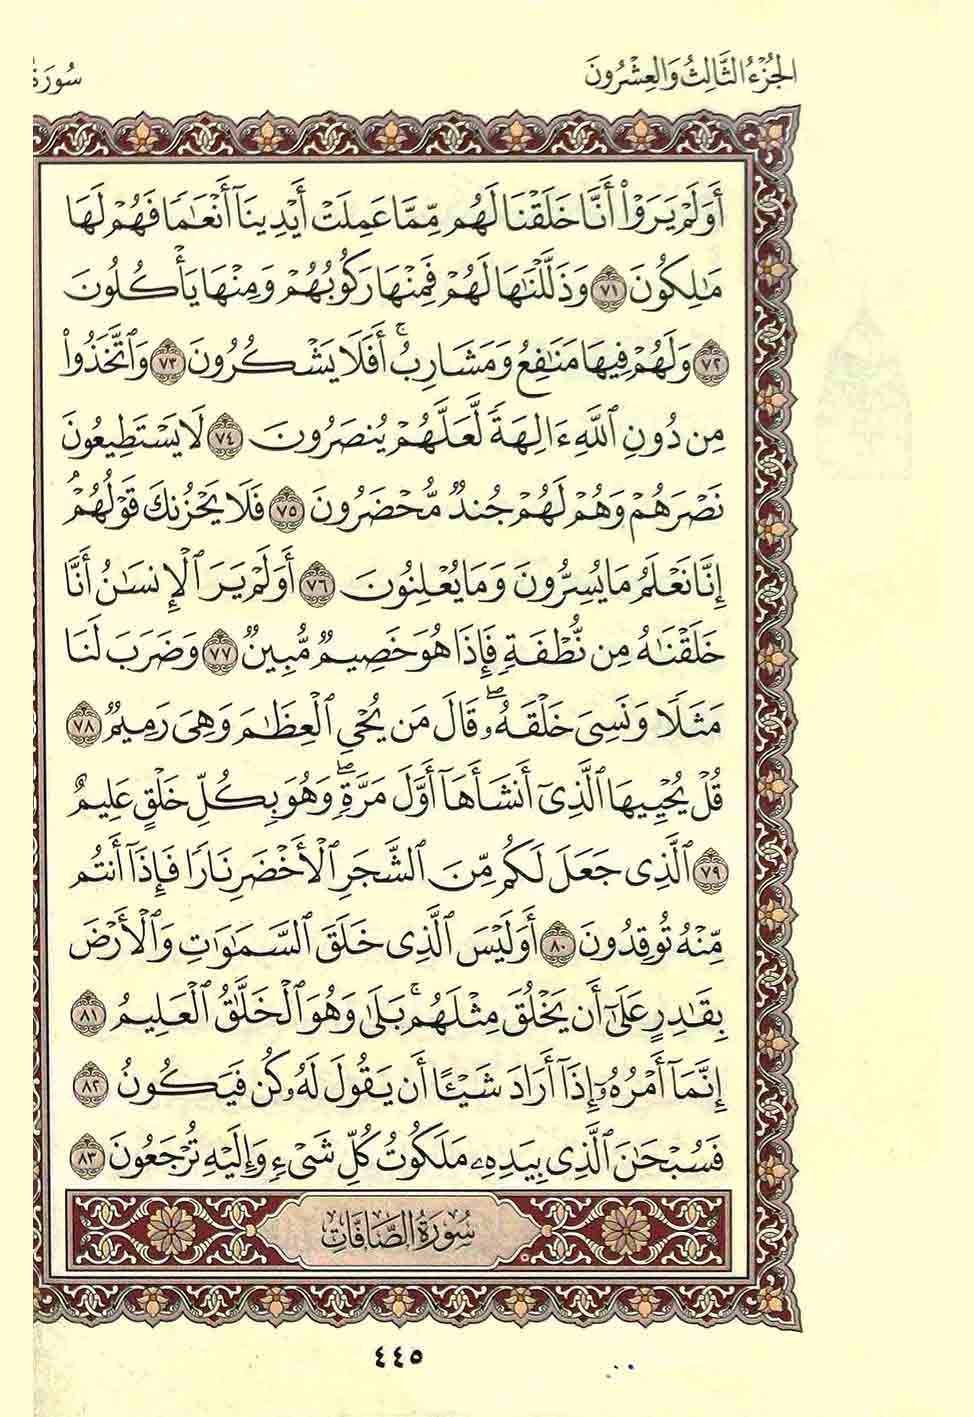 الجُزْءُ الثَّالِثُ وَالعِشْرُونَ
سُورَةُ
أَوَلَمْ يَرَوْا۟ أَنَّا خَلَقْنَا لَهُم مِّمَّا عَمِلَتْ أَيْدِينَآ أَنْعَٰمًا فَهُمْ لَهَا
مَٰلِكُونَ ٧١ وَذَلَّلْنَٰهَا لَهُمْ فَمِنْهَا رَكُوبُهُمْ وَمِنْهَا يَأْكُلُونَ
٧٢ وَلَهُمْ فِيهَا مَنَٰفِعُ وَمَشَارِبُ ۚ أَفَلَا يَشْكُرُونَ ٧٣ وَٱتَّخَذُوا۟
مِن دُونِ ٱللَّهِ ءَالِهَةً لَّعَلَّهُمْ يُنصَرُونَ ٧٤ لَا يَسْتَطِيعُونَ
نَصْرَهُمْ وَهُمْ لَهُمْ جُندٌ مُّحْضَرُونَ ٧٥ فَلَا يَحْزُنكَ قَوْلُهُمْ ۘ
إِنَّا نَعْلَمُ مَا يُسِرُّونَ وَمَا يُعْلِنُونَ ٧٦ أَوَلَمْ يَرَ ٱلْإِنسَٰنُ أَنَّا
خَلَقْنَٰهُ مِن نُّطْفَةٍ فَإِذَا هُوَ خَصِيمٌ مُّبِينٌ ٧٧ وَضَرَبَ لَنَا
مَثَلًا وَنَسِىَ خَلْقَهُۥ ۖ قَالَ مَن يُحْىِ ٱلْعِظَٰمَ وَهِىَ رَمِيمٌ ٧٨
قُلْ يُحْيِيهَا ٱلَّذِىٓ أَنشَأَهَآ أَوَّلَ مَرَّةٍ ۖ وَهُوَ بِكُلِّ خَلْقٍ عَلِيمٌ
٧٩ ٱلَّذِى جَعَلَ لَكُم مِّنَ ٱلشَّجَرِ ٱلْأَخْضَرِ نَارًا فَإِذَآ أَنتُم
مِّنْهُ تُوقِدُونَ ٨٠ أَوَلَيْسَ ٱلَّذِى خَلَقَ ٱلسَّمَٰوَٰتِ وَٱلْأَرْضَ
بِقَٰدِرٍ عَلَىٰٓ أَن يَخْلُقَ مِثْلَهُم ۚ بَلَىٰ وَهُوَ ٱلْخَلَّٰقُ ٱلْعَلِيمُ ٨١
إِنَّمَآ أَمْرُهُۥٓ إِذَآ أَرَادَ شَيْـًٔا أَن يَقُولَ لَهُۥ كُن فَيَكُونُ ٨٢
فَسُبْحَٰنَ ٱلَّذِى بِيَدِهِۦ مَلَكُوتُ كُلِّ شَىْءٍ وَإِلَيْهِ تُرْجَعُونَ ٨٣
سُورَةُ الصَّافَّاتِ
٤٤٥